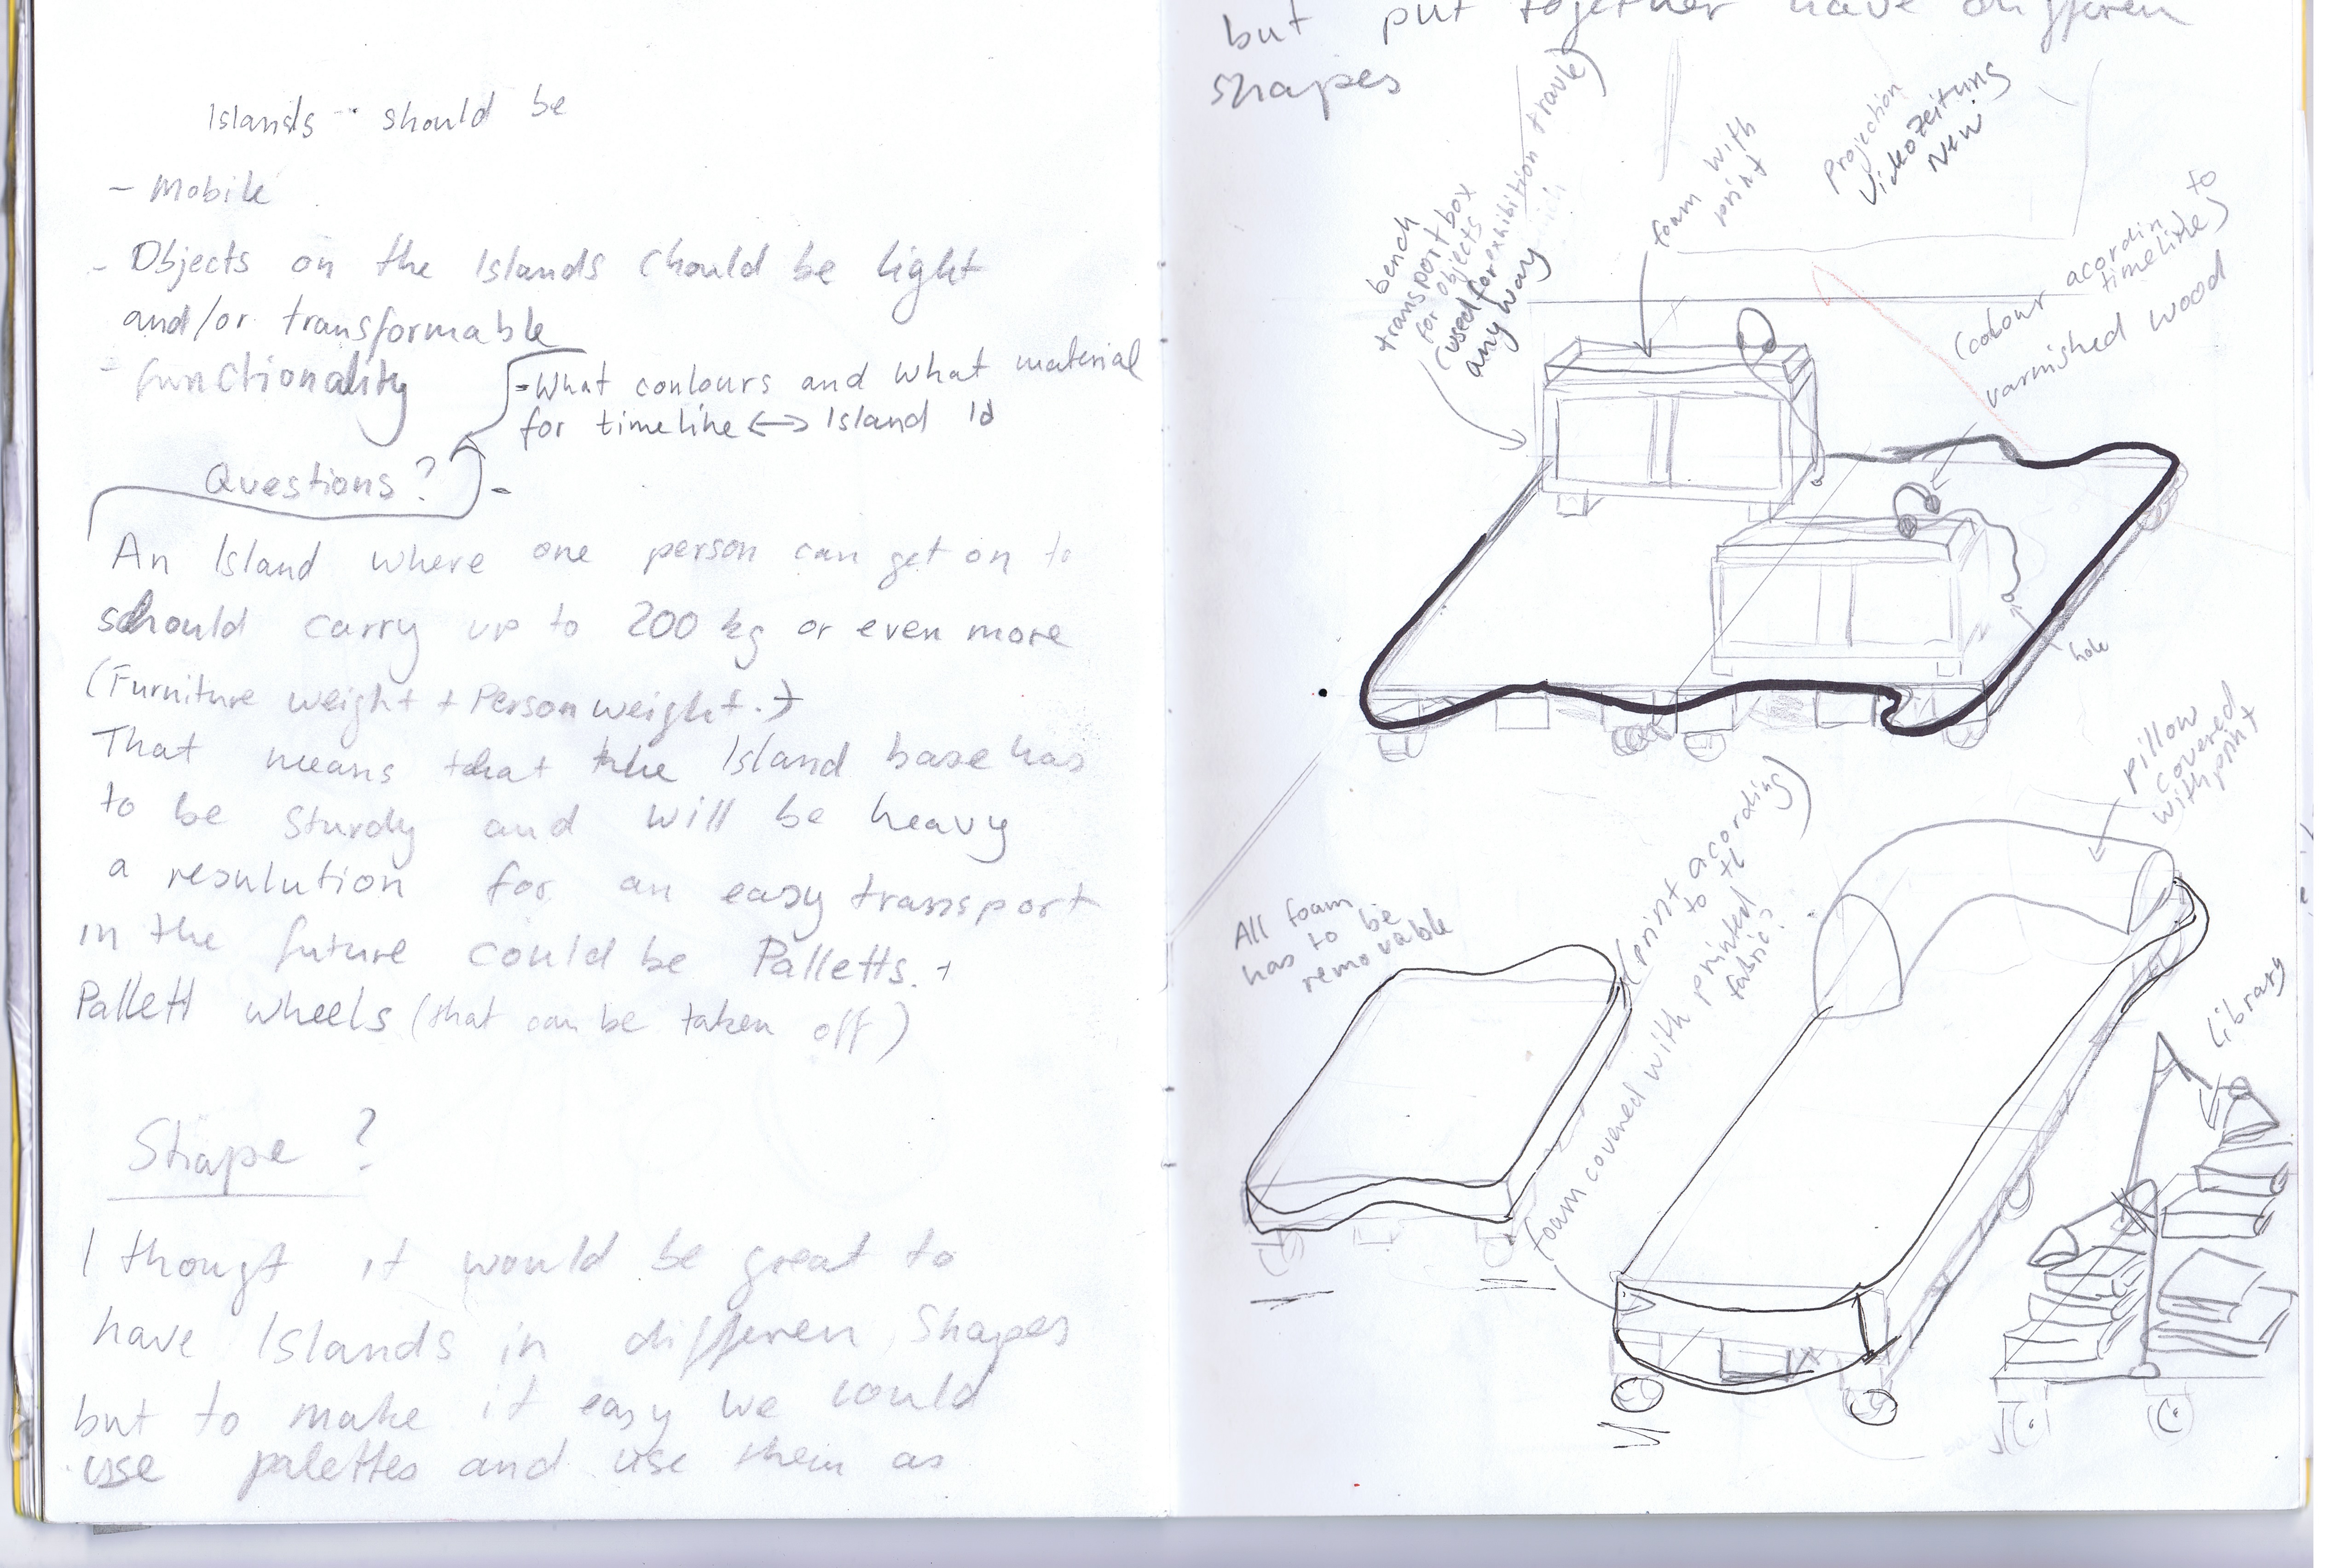 Islands -- should be
- Mobile
- Objects on the Islands should be light
and/or transformable
- functionality
- What coulours and what material
for timeline <-> Island Id
Questions?
-
An Island where one person can get on to
should carry up to 200 kg or even more
(Furniture weight + Person weight.)
That means that the Island base has
to be sturdy and will be heavy
a resulution for an easy transport
in the future could be Palletts. +
Pallett wheels (that can be taken off)
Shape ?
I thougt it would be great to
have Islands in differen Shapes
but to make it easy we could
use palettes and use them as
but put together have differen
shapes
bench
transport box
for objects
(used for exhibition travle)
any way
foam with
print
Projection
Videozeitung
New
(colour acordin to
timeline)
varnished wood
hole
pillow
covered
with print
All foam
has to be
removable
foam covered with printed
fabric?
(print acording)
to th
library